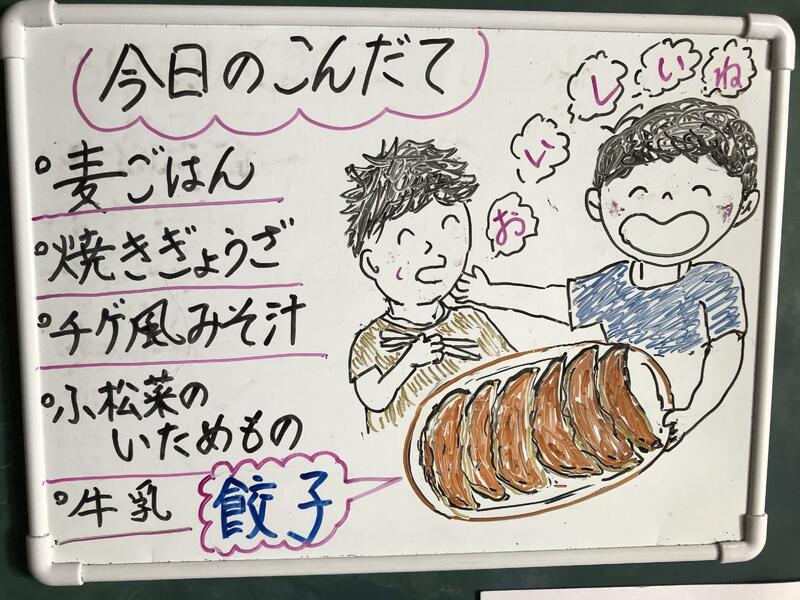 今日のこんだて
。麦ごはん
。焼きぎょうざ
。チゲ風みそ汁
。小松菜の
いためもの
。牛乳
餃子
おいしいね